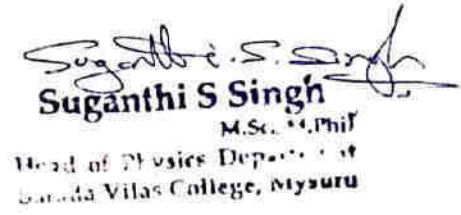 Suganthi.S.Singh
Suganthi S Singh
M.Sc. M.Phil
Head of Physics Department
Sarada Vilas College, Mysuru